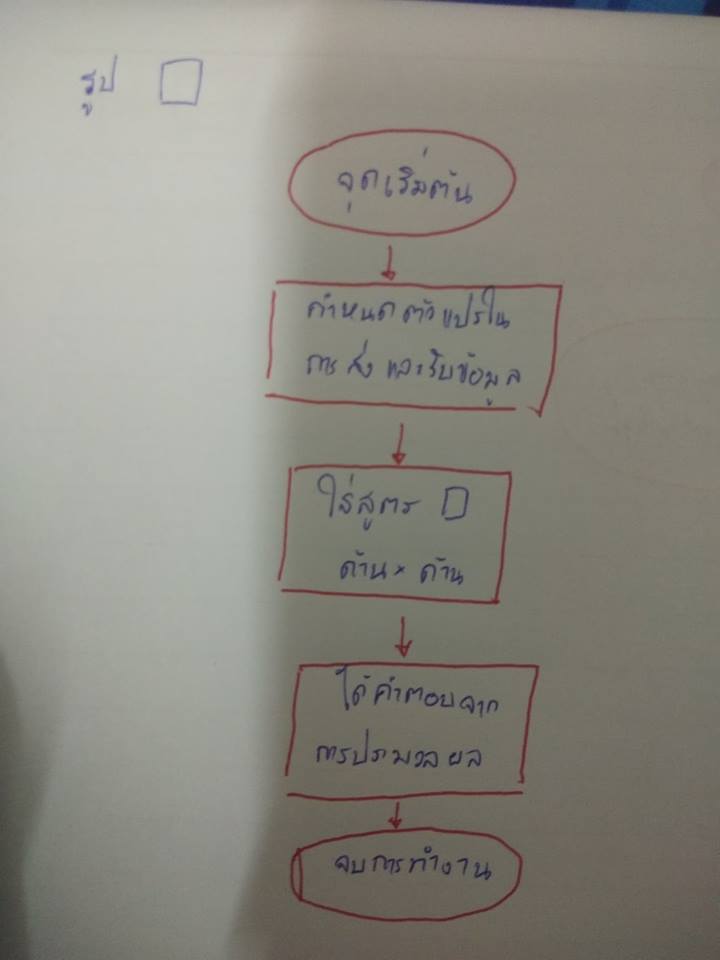 รูป
จุดเริ่มต้น
กำหนดตัวแปรใน
การส่งและรับข้อมูล
ใส่สูตร
ด้าน × ด้าน
ได้คำตอบจาก
การประมวลผล
จบการทำงาน